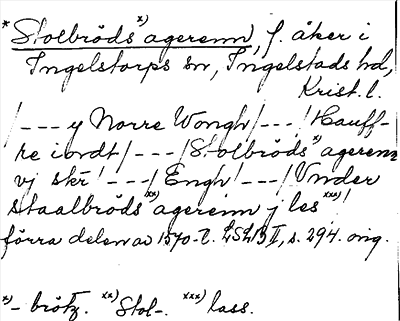 * Stolbröds *) agerenn, f. åker i
Ingelstorps sn, Ingelstads hd,
Krist. l.
/ - - - y Norre Wongh / - - - / Hauff-
re iordt / - - - / Stolbröds *) agerenn
vj skr / - - - / Engh / - - - / Vnder
staalbröds **) agerenn j les ***) /
förra delen av 1570-t. LSLB II, s. 294. orig.
*) - brötz. **) Stol-. ***) lass.